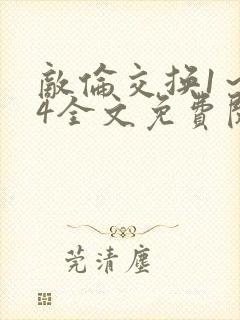 敵倫交換1～
4全文免費閱
莞清塵